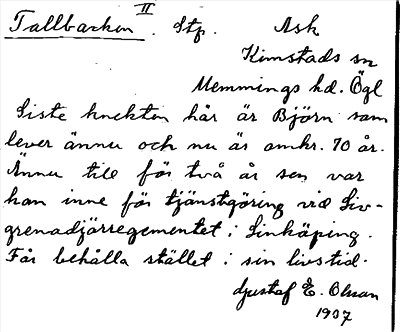 Tallbacken II. Stp. Ask
Kimstads sn
Memmings hd. Ögl
Siste knekten här är Björn som
lever ännu och nu är omkr. 70 år.
Ännu till för två år sen var
han inne för tjänstgöring vid Liv-
grenadjärregementet i Linköping.
Får behålla stället i sin livstid.
Gustaf E. Olsson
1907